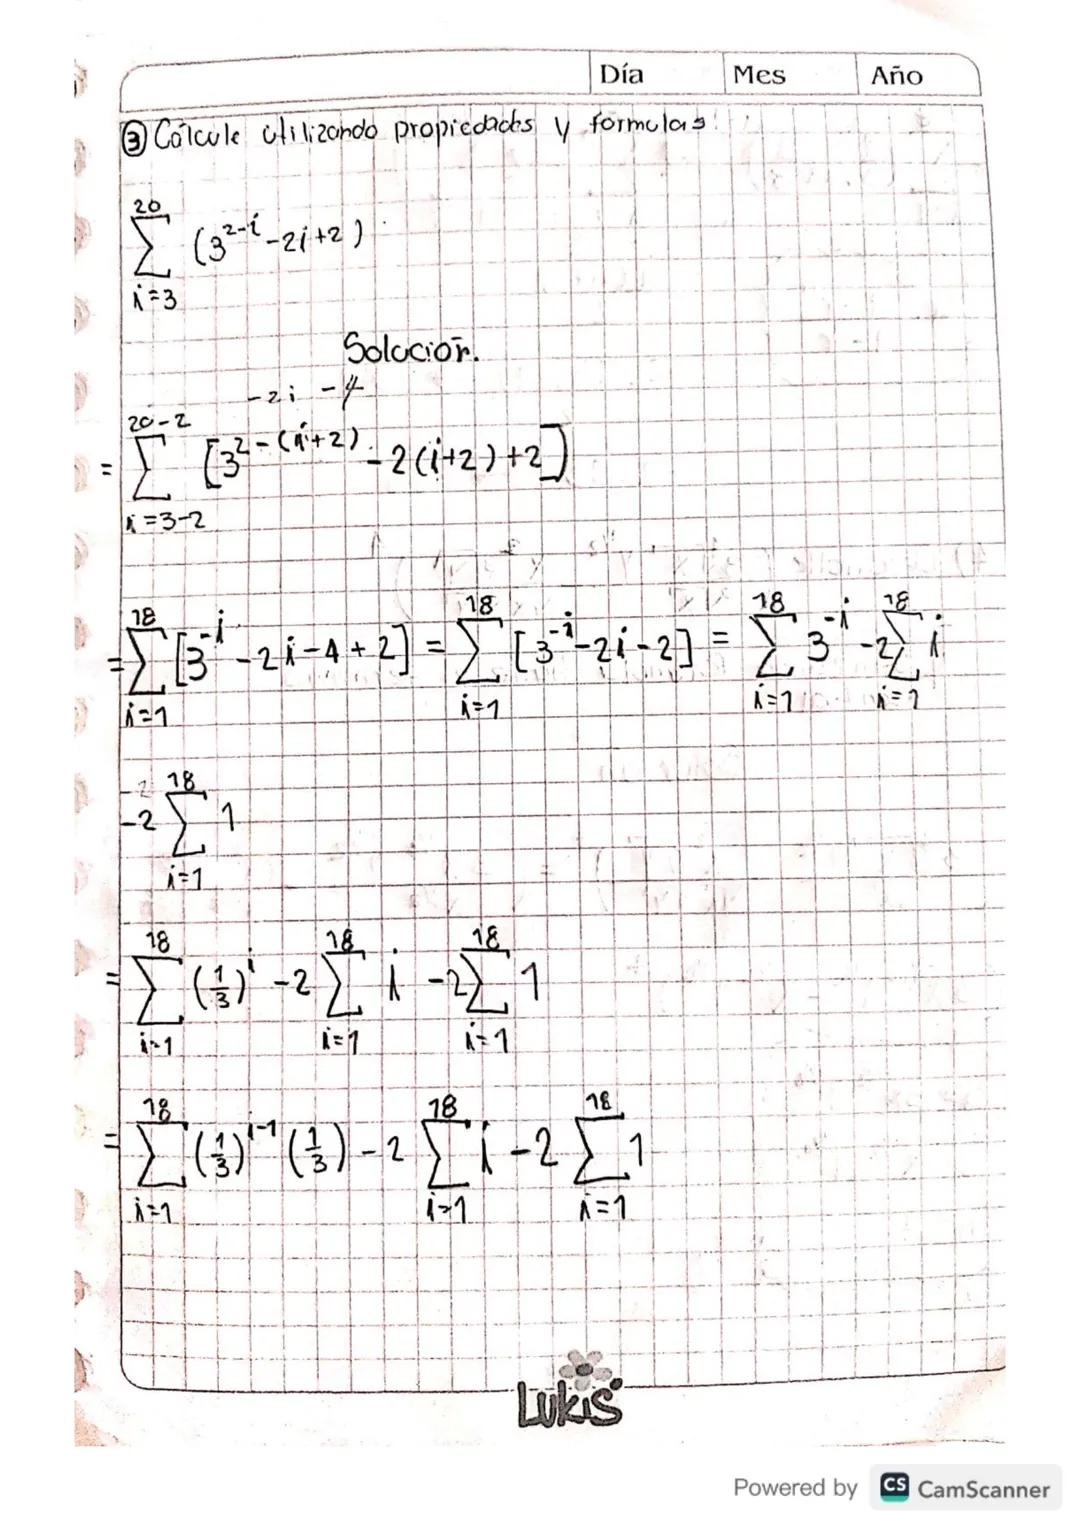 Día Mes Año
③ Cálcule utilizando propiedades y formulas
20
∑ (3^{2-i} -2i+2)
i=3
Solución.
-2i -4
20-2
= ∑ [3^{2-(i+2)} -2(i+2)+2]
i=3-2
18 18 18 18
=∑ [3^{-i} -2i-4+2] = ∑ [3^{-i} -2i-2] = ∑ 3^{-i} -2∑ i
i=1 i=1 i=1 i=1
18
-2 ∑ 1
i=1
18 18 18
= ∑ (1/3)^i -2 ∑ i -2∑ 1
i=1 i=1 i=1
18 18 18
= ∑ (1/3)^{i-1} (1/3) -2 ∑ i -2 ∑ 1
i=1 i=1 i=1
Lukis
Powered by CS CamScanner